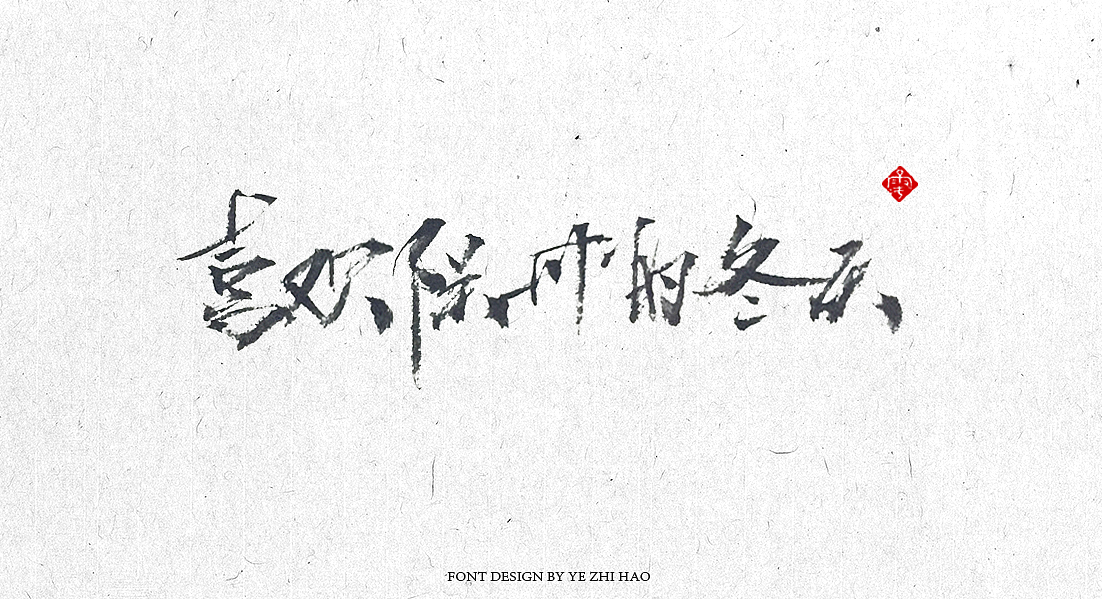 喜欢的冬天
FONT DESIGN BY YE ZHI HAO